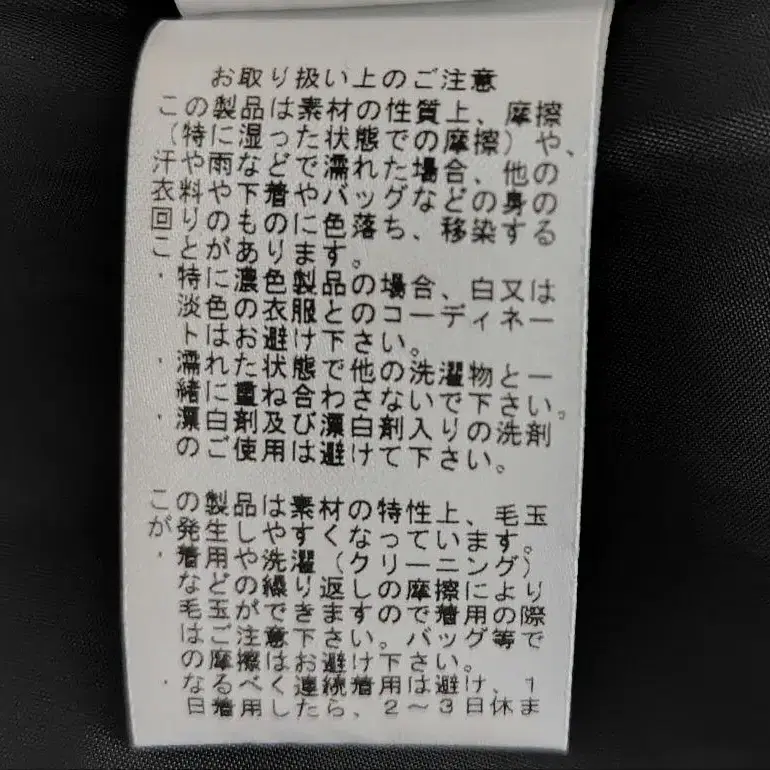 お取り扱い上のご注意
この製品は素材の性質上、摩擦
（特に湿った状態での摩擦）や、
汗や雨などで濡れた場合、他の
衣料や下着やバッグなどの身の
回りのものに色落ち、移染する
ことがあります。
・特に濃色製品の場合、白又は
淡色の衣服とのコーディネー
トはお避け下さい。
・濡れた状態で他の洗濯物と一
緒に重ね合わさないで下さい。
・漂白剤及び漂白剤入りの洗剤
のご使用は避けて下さい。
この製品は素材の特性上、毛玉
が発生しやすくなっています。
・着用や洗濯（クリーニング）
などの繰り返しの摩擦により
毛玉ができますので着用の際
はご注意下さい。バッグ等で
の摩擦はお避け下さい。
・なるべく連続着用は避け、１
日着用したら、２～３日休ま